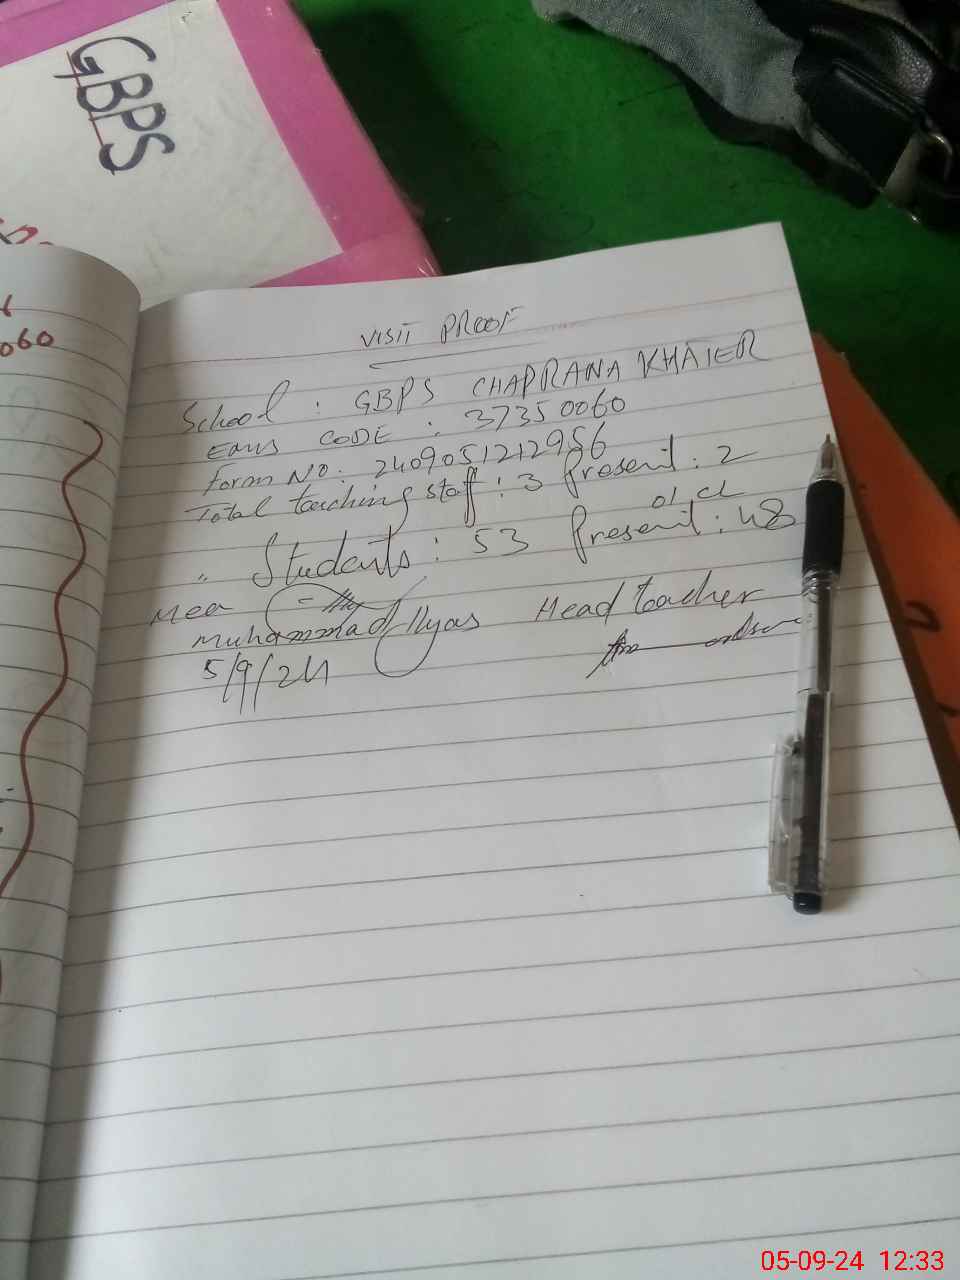 GBPS
060
VISIT PROOF
School : GBPS CHAPRANA KHATER
EMIS CODE : 37350060
Form No: 2409051212956
Total teaching staff : 3 Present : 2
01 CL
" Students : 53 Present : 48
Mea
Muhammad Ilyas Head teacher
5/9/24
05-09-24 12:33